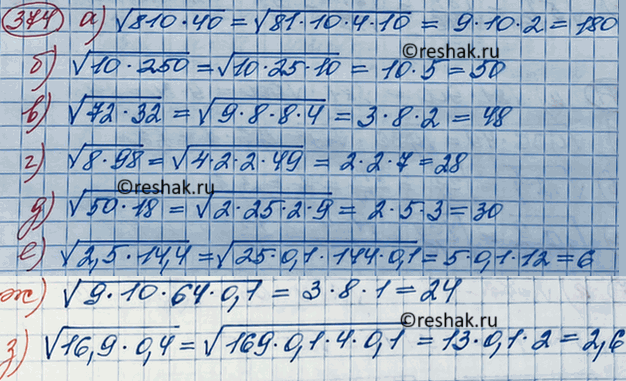 374 а) √810·40 = √81·10·4·10 = 9·10·2 = 180
©reshak.ru
б) √10·250 = √10·25·10 = 10·5 = 50
в) √72·32 = √9·8·8·4 = 3·8·2 = 48
г) √8·98 = √4·2·2·49 = 2·2·7 = 28
©reshak.ru
д) √50·18 = √2·25·2·9 = 2·5·3 = 30
е) √2,5·14,4 = √25·0,1·144·0,1 = 5·0,1·12 = 6
ж) √9·10·64·0,1 = 3·8·1 = 24
©reshak.ru
з) √16,9·0,4 = √169·0,1·4·0,1 = 13·0,1·2 = 2,6